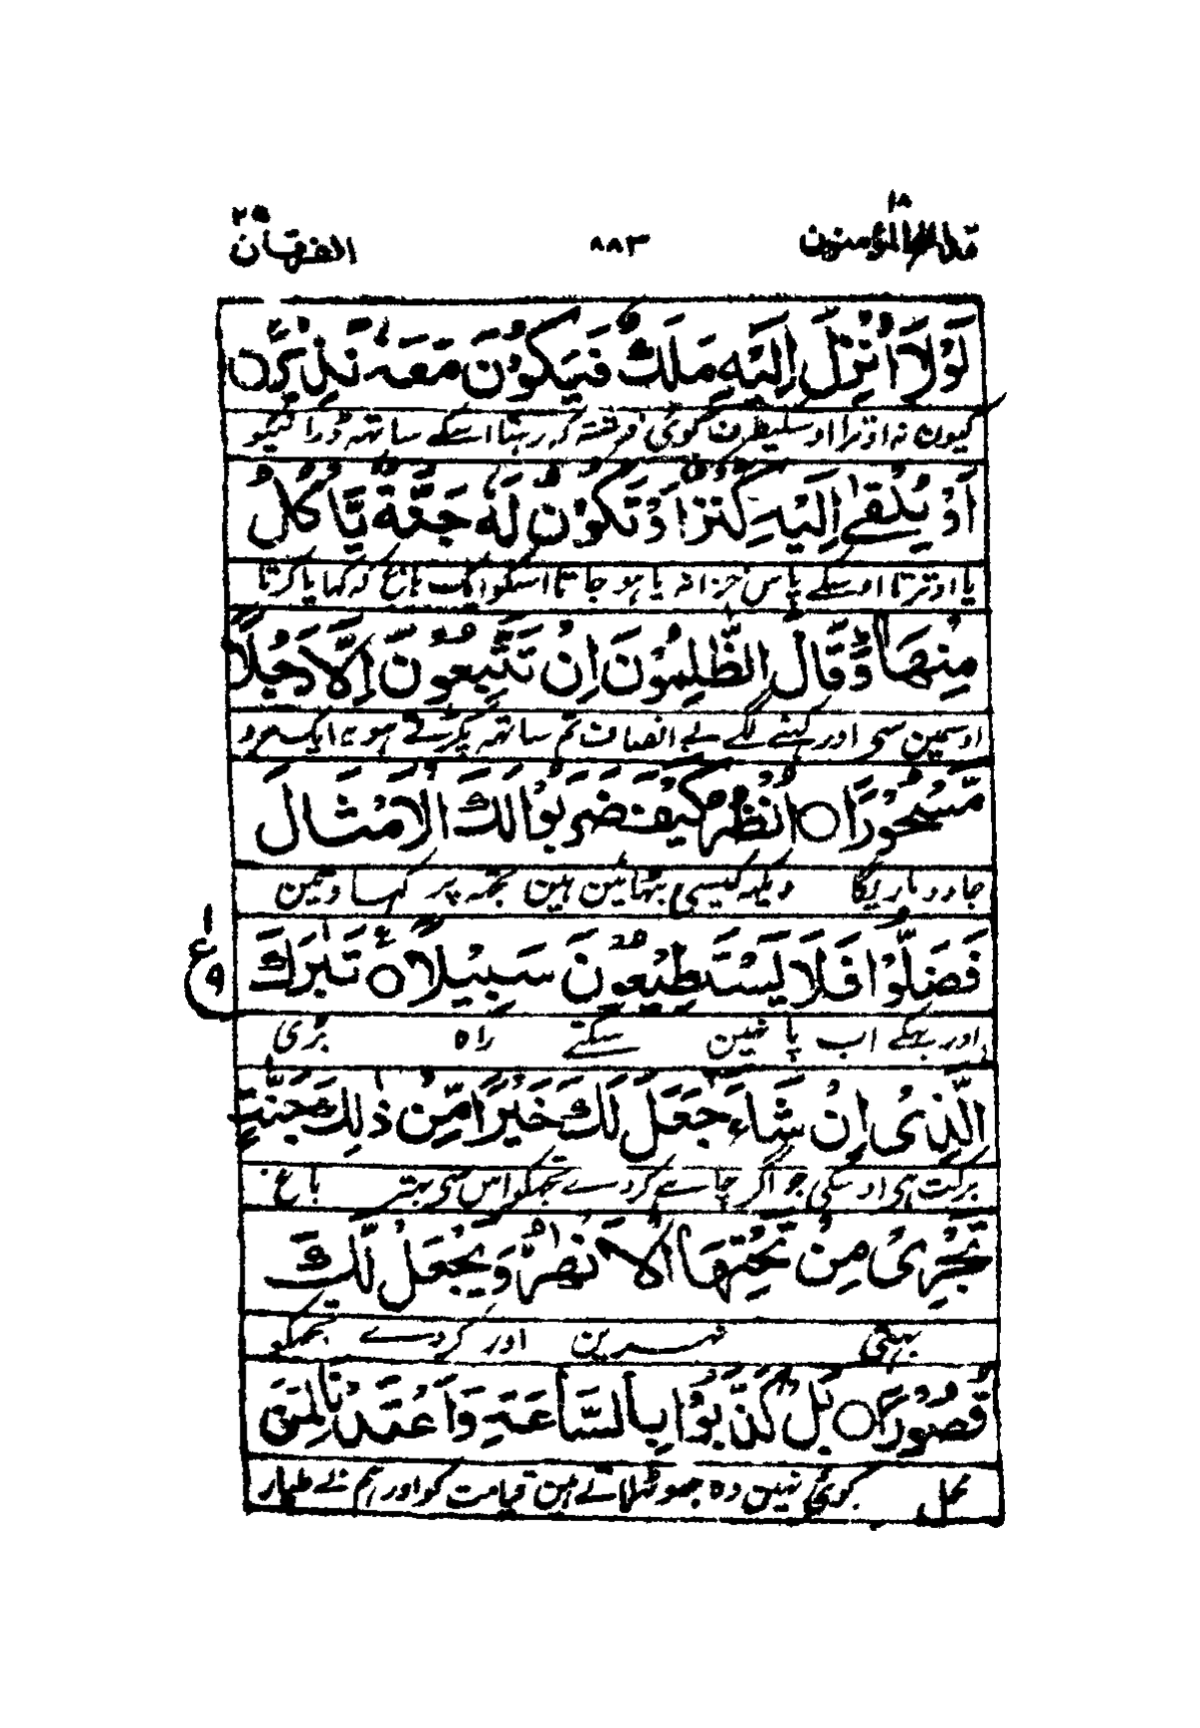 قد افلح المؤمنون ١٨ ٨٨٣ الفرقان ٢٥
لَوْلَآ اُنْزِلَ اِلَيْهِ مَلَكٌ فَيَكُوْنَ مَعَهٗ نَذِيْرًا ۙ
کیون نہ اوترا اوسکیطرن کوئی فرشتہ کہ رہتا اسکے ساتھہ ڈرانیکو
اَوْ يُلْقٰٓى اِلَيْهِ كَنْزٌ اَوْ تَكُوْنُ لَهٗ جَنَّةٌ يَّاْكُلُ
یا اوترتا اوسکے پاس خزانہ یا ہو جاتا اسکو ایک باغ کہ کہایا کرتا
مِنْهَا ۭ وَقَالَ الظّٰلِمُوْنَ اِنْ تَتَّبِعُوْنَ اِلَّا رَجُلًا
اوسمین سی اور کہنے لگے بے انصاف تم ساتھہ پکڑتے ہو یہ ایک مرد
مَّسْحُوْرًا ○ اُنْظُرْ كَيْفَ ضَرَبُوْا لَكَ الْاَمْثَالَ
جادو مار یکا دیکہہ کیسی بٹھائین ہین تجھہ پر کہاوتین
فَضَلُّوْا فَلَا يَسْتَطِيْعُوْنَ سَبِيْلًا ○ ۧ تَبٰرَكَ
اور بہکے اب پا نہین سکتے راہ بڑی
١ ع ٩
الَّذِيْٓ اِنْ شَآءَ جَعَلَ لَكَ خَيْرًا مِّنْ ذٰلِكَ جَنّٰتٍ
برکت ہی اوسکی جو اگر چاہے کردے تجھکو اس سی بہتر باغ
تَجْرِيْ مِنْ تَحْتِهَا الْاَنْهٰرُ وَيَجْعَلْ لَّكَ
بہتی نہرین اور کردے تجھکو
قُصُوْرًا ○ بَلْ كَذَّبُوْا بِالسَّاعَةِ وَاَعْتَدْنَا لِمَنْ
محل کوئی نہین وہ جھوٹھلاتے ہین قیامت کو اور ہم نے طیار